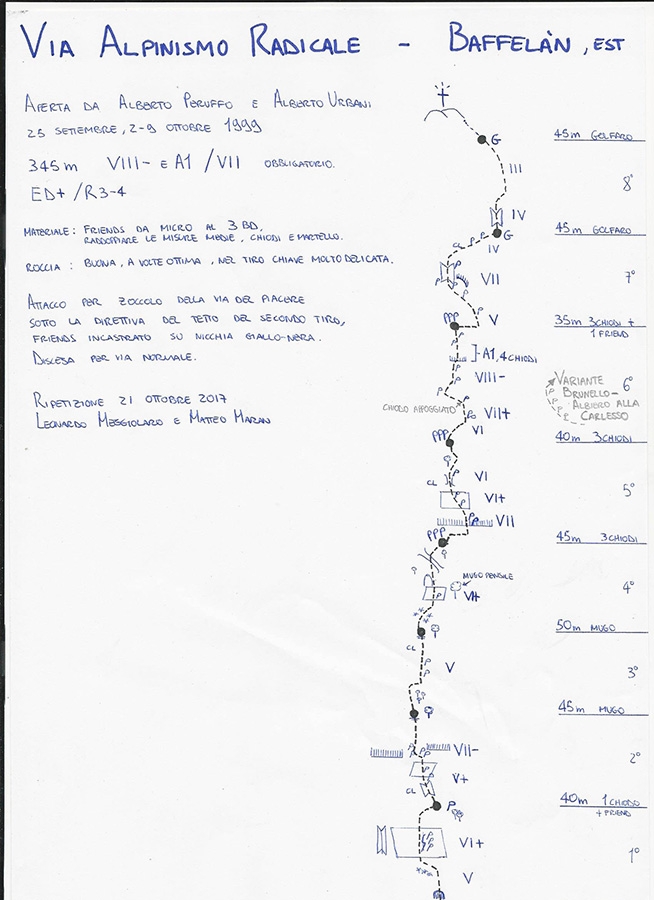 VIA ALPINISMO RADICALE - BAFFELÀN, EST
APERTA DA ALBERTO PERUFFO E ALBERTO URBANI
25 SETTEMBRE, 2-9 OTTOBRE 1999
345 m VIII- E A1 /VII OBBLIGATORIO.
ED+ /R3-4
MATERIALE: FRIENDS DA MICRO AL 3 BD,
RADDOPPIARE LE MISURE MEDIE, CHIODI E MARTELLO.
ROCCIA : BUONA, A VOLTE OTTIMA, NEL TIRO CHIAVE MOLTO DELICATA.
ATTACCO PER ZOCCOLO DELLA VIA DEL PIACERE
SOTTO LA DIRETTIVA DEL TETTO DEL SECONDO TIRO,
FRIENDS INCASTRATO SU NICCHIA GIALLO-NERA.
DISCESA PER VIA NORMALE.
RIPETIZIONE 21 OTTOBRE 2017
LEONARDO MEGGIOLARO E MATTEO MARAN
G
45m GOLFARO
III
8°
IV
G
45m GOLFARO
CL
IV
VII
7°
V
PPP
35m 3 CHIODI +
1 FRIEND
]-A1, 4 CHIODI
VIII-
VARIANTE
BRUNELLO-
ALBIERO ALLA
CARLESSO
6°
CHIODO APPOGGIATO
VII+
VI
PPP
40m 3 CHIODI
VI
CL
VI+
5°
VII
PPP
45m 3 CHIODI
MUGO PENSILE
VI+
4°
50m MUGO
CL
V
3°
45m MUGO
VII-
2°
V+
CL
P
40m 1 CHIODO
+ FRIEND
VI+
1°
V